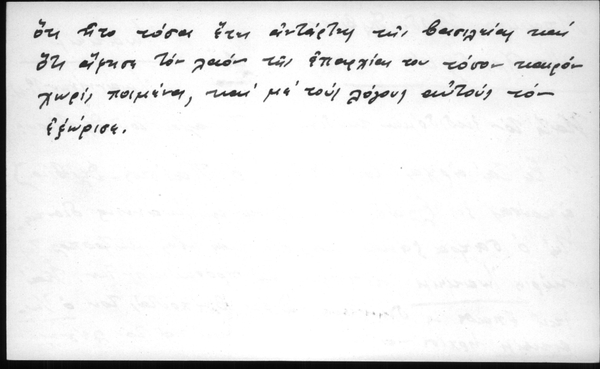 ὅτι ἦτο τόσα ἔτη ἀντάρτης τῆς βασιλείας καὶ
ὅτι ἄφησε τὸν λαὸν τῆς ἐπαρχίας του τόσον καιρὸν
χωρὶς ποιμένα, καὶ μὲ τοὺς λόγους αὐτοὺς τὸν
ἐξώρισε.